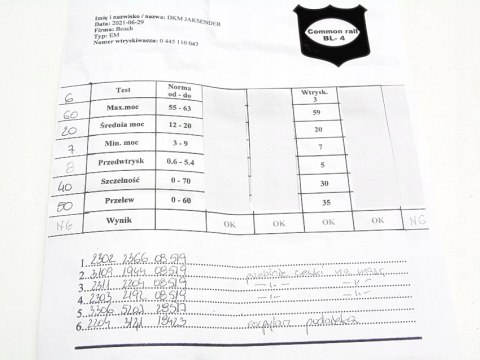 Imię i nazwisko / nazwa: DKM JAKSENDER
Data: 2021-06-29
Firma: Bosch
Typ: EM
Numer wtryskiwacza: 0 445 110 047
Common rail
BL- 4
6 Test Norma od - do Wtrysk. 3
60 Max.moc 55 - 63 59
20 Średnia moc 12 - 20 20
7 Min. moc 3 - 9 7
8 Przedwtrysk 0.6 - 5.4 5
40 Szczelność 0 - 70 30
50 Przelew 0 - 60 35
NG Wynik OK OK OK OK NG
1 2302 2366 08519
2 3109 1944 08519
3 2311 2204 08519
4 2303 2192 08519
5 3306 5201 28517
6 2204 3121 18423